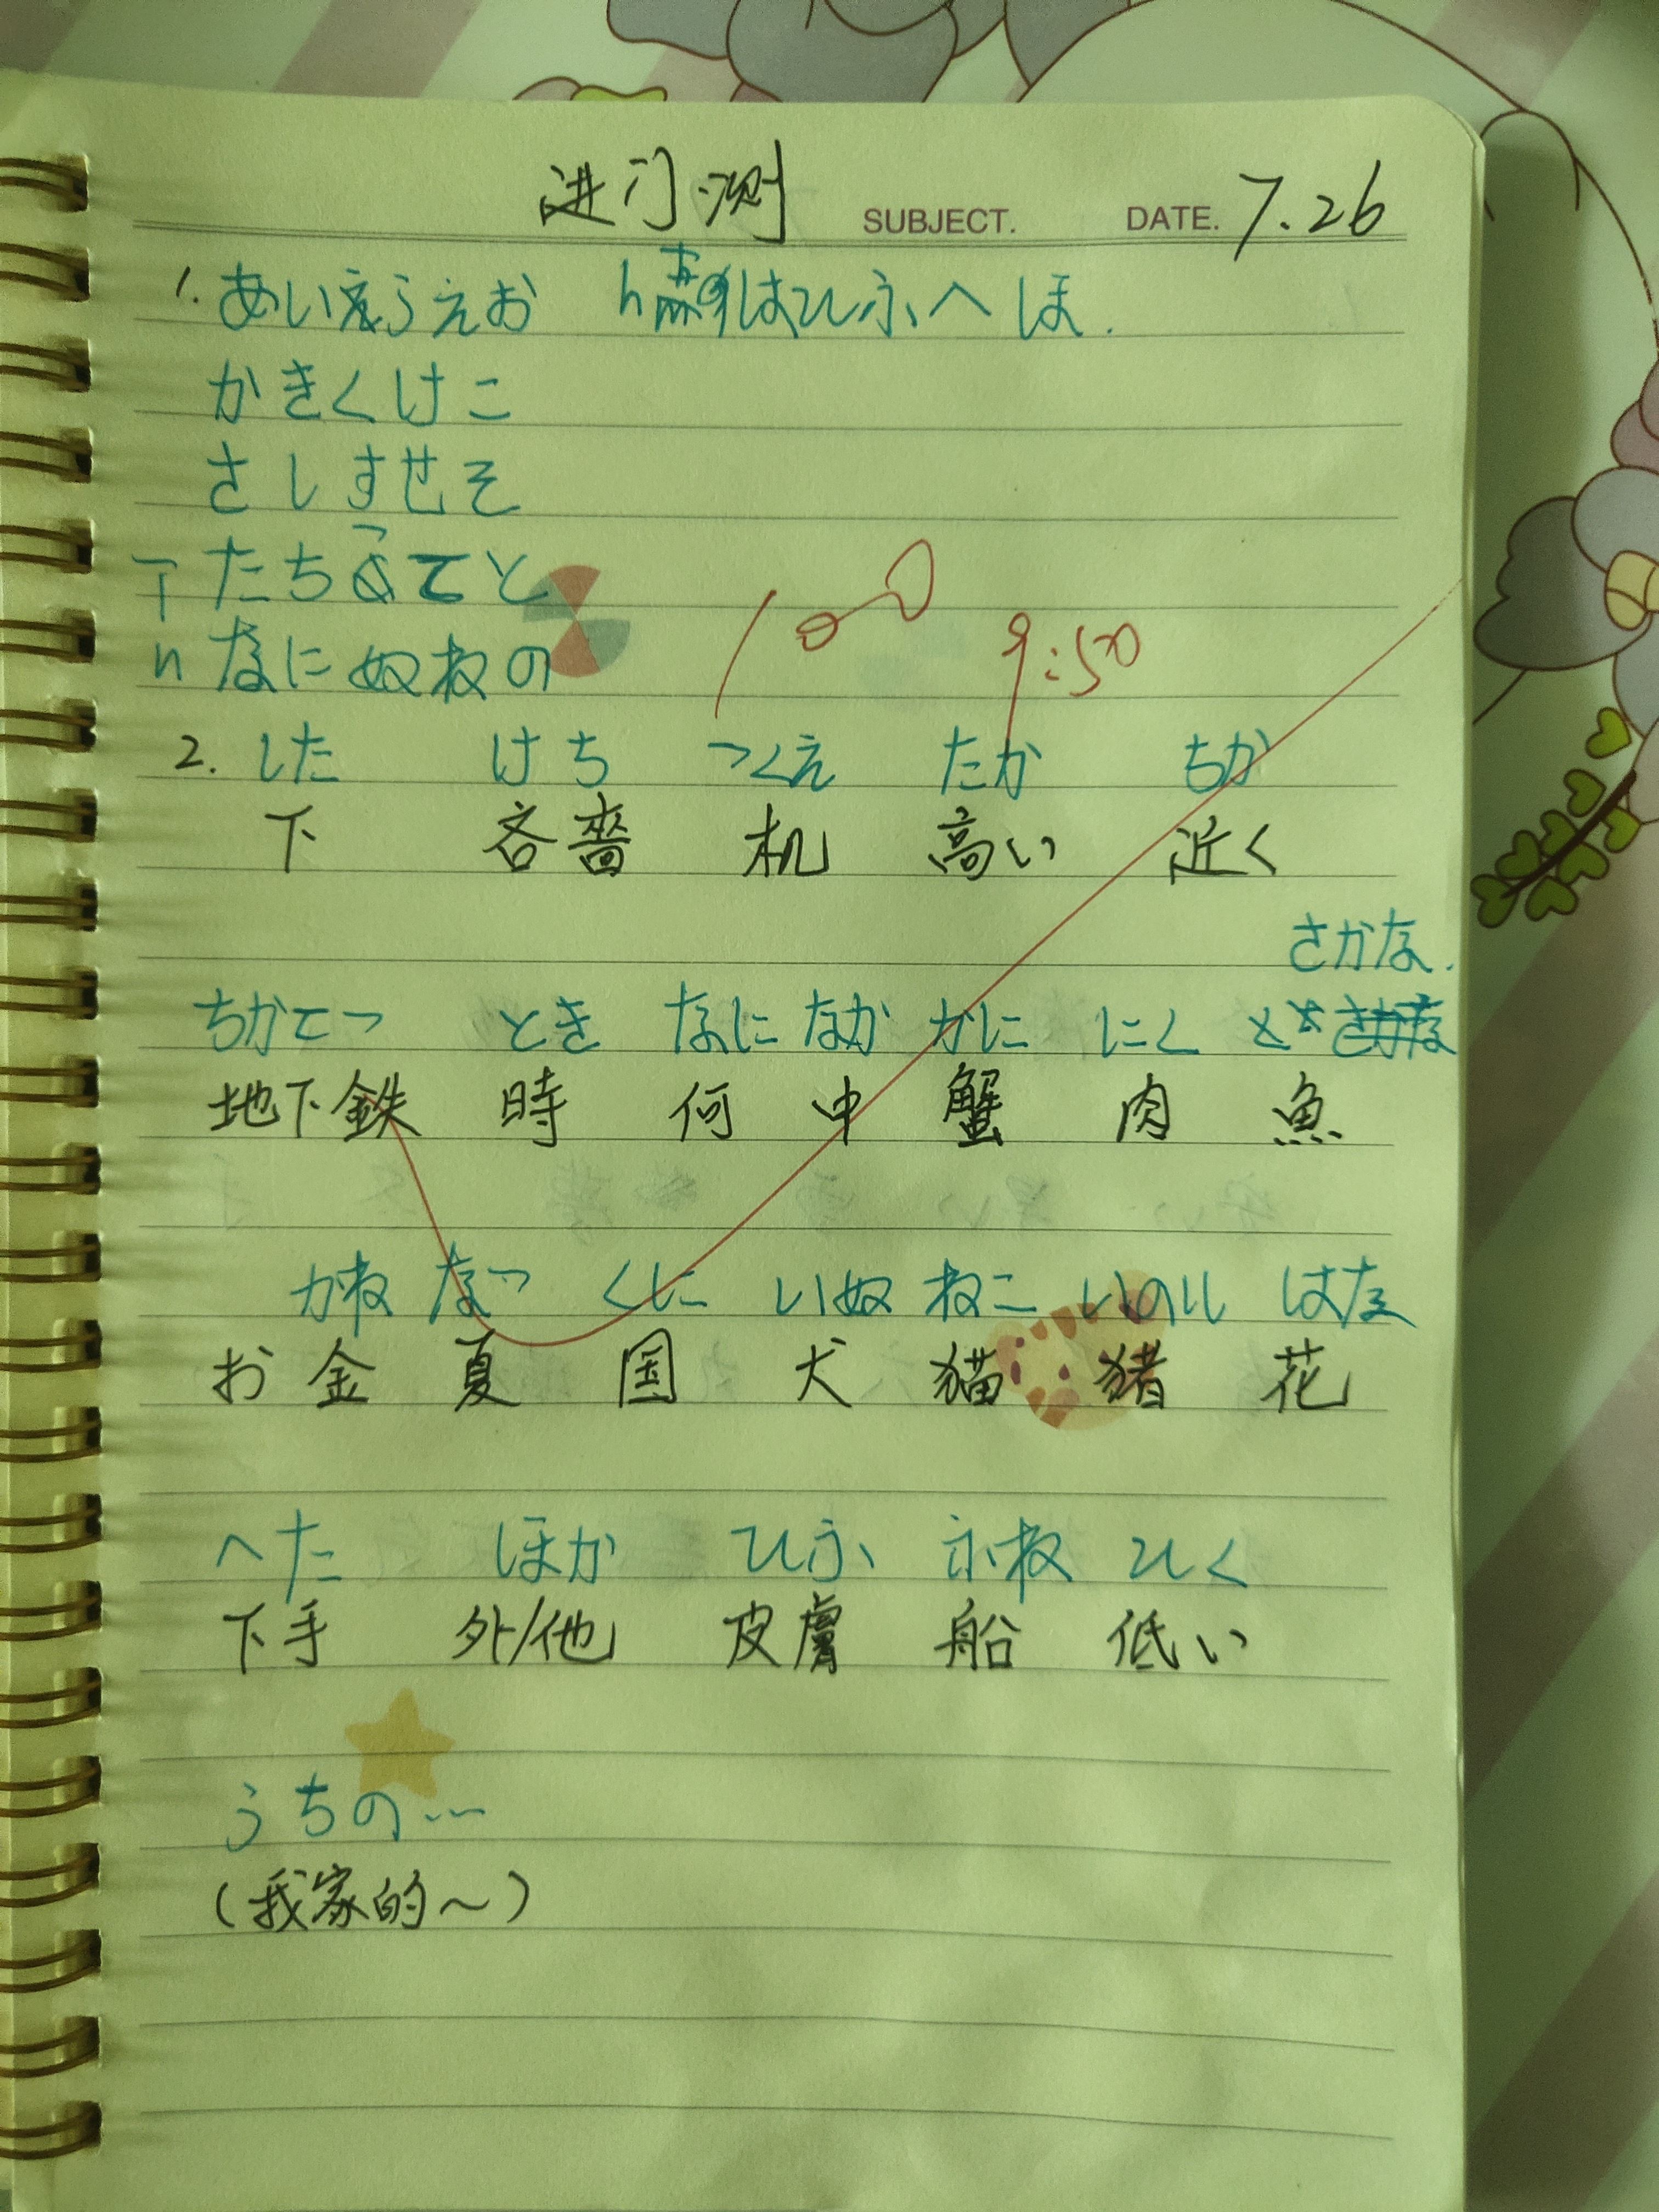 进门测 SUBJECT. DATE. 7.26
1. あいうえお h はひふへほ.
かきくけこ
さしすせそ
T たちつてと
n なにぬねの
100 9:50
2. した けち つくえ たか ちか
下 吝嗇 机 高い 近く
さかな.
ちかてつ とき なに なか かに にく
地下鉄 時 何 中 蟹 肉 魚
かね なつ くに いぬ ねこ いのし はな
お金 夏 国 犬 猫 猪 花
へた ほか ひふ ふね ひく
下手 外/他 皮膚 船 低い
うちの…
(我家的～)